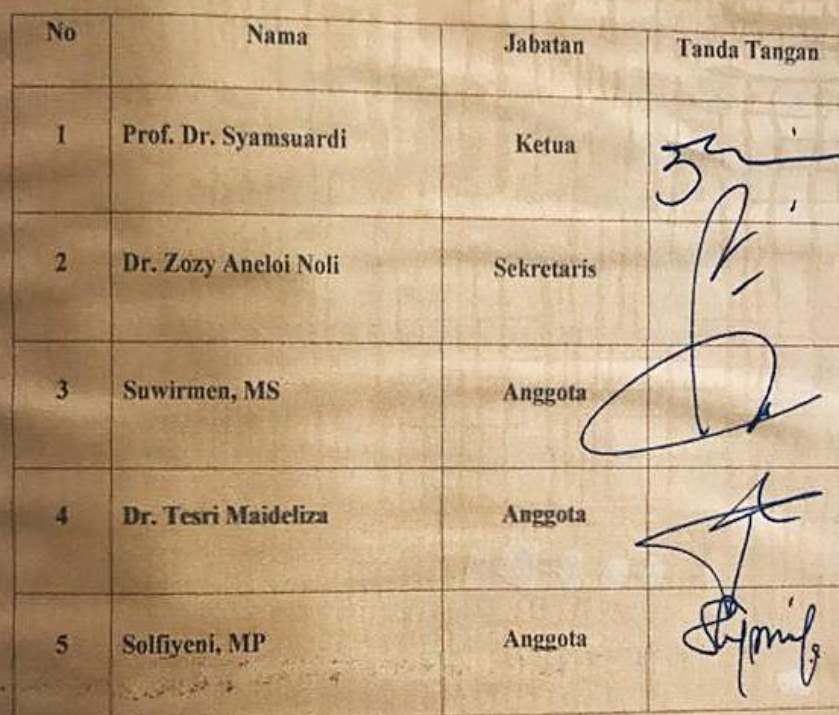 No Nama Jabatan Tanda Tangan
1 Prof. Dr. Syamsuardi Ketua
2 Dr. Zozy Aneloi Noli Sekretaris
3 Suwirmen, MS Anggota
4 Dr. Tesri Maideliza Anggota
5 Solfiyeni, MP Anggota